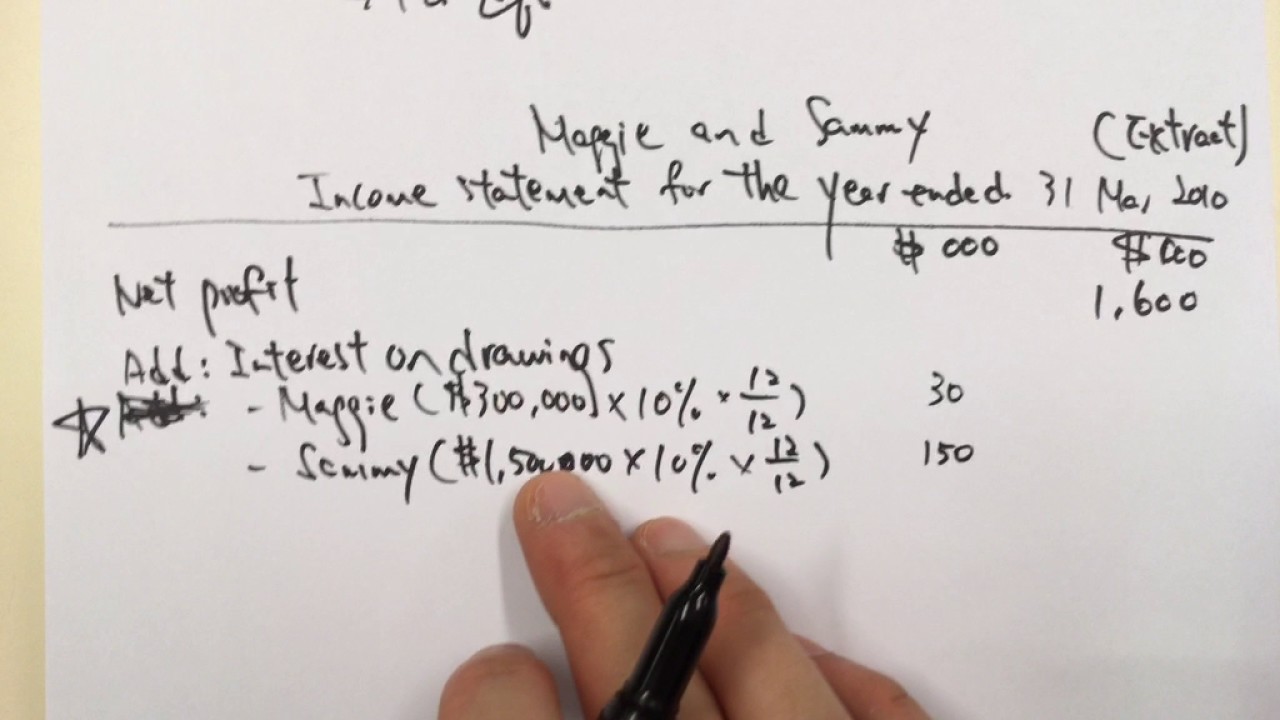 Maggie and Sammy (Extract)
Income statement for the year ended 31 Mar 2010
$ 000 $ 000
Net profit 1,600
Add: Interest on drawings
- Maggie ($300,000) × 10% × 12/12) 30
- Sammy ($1,500,000 × 10% × 12/12) 150